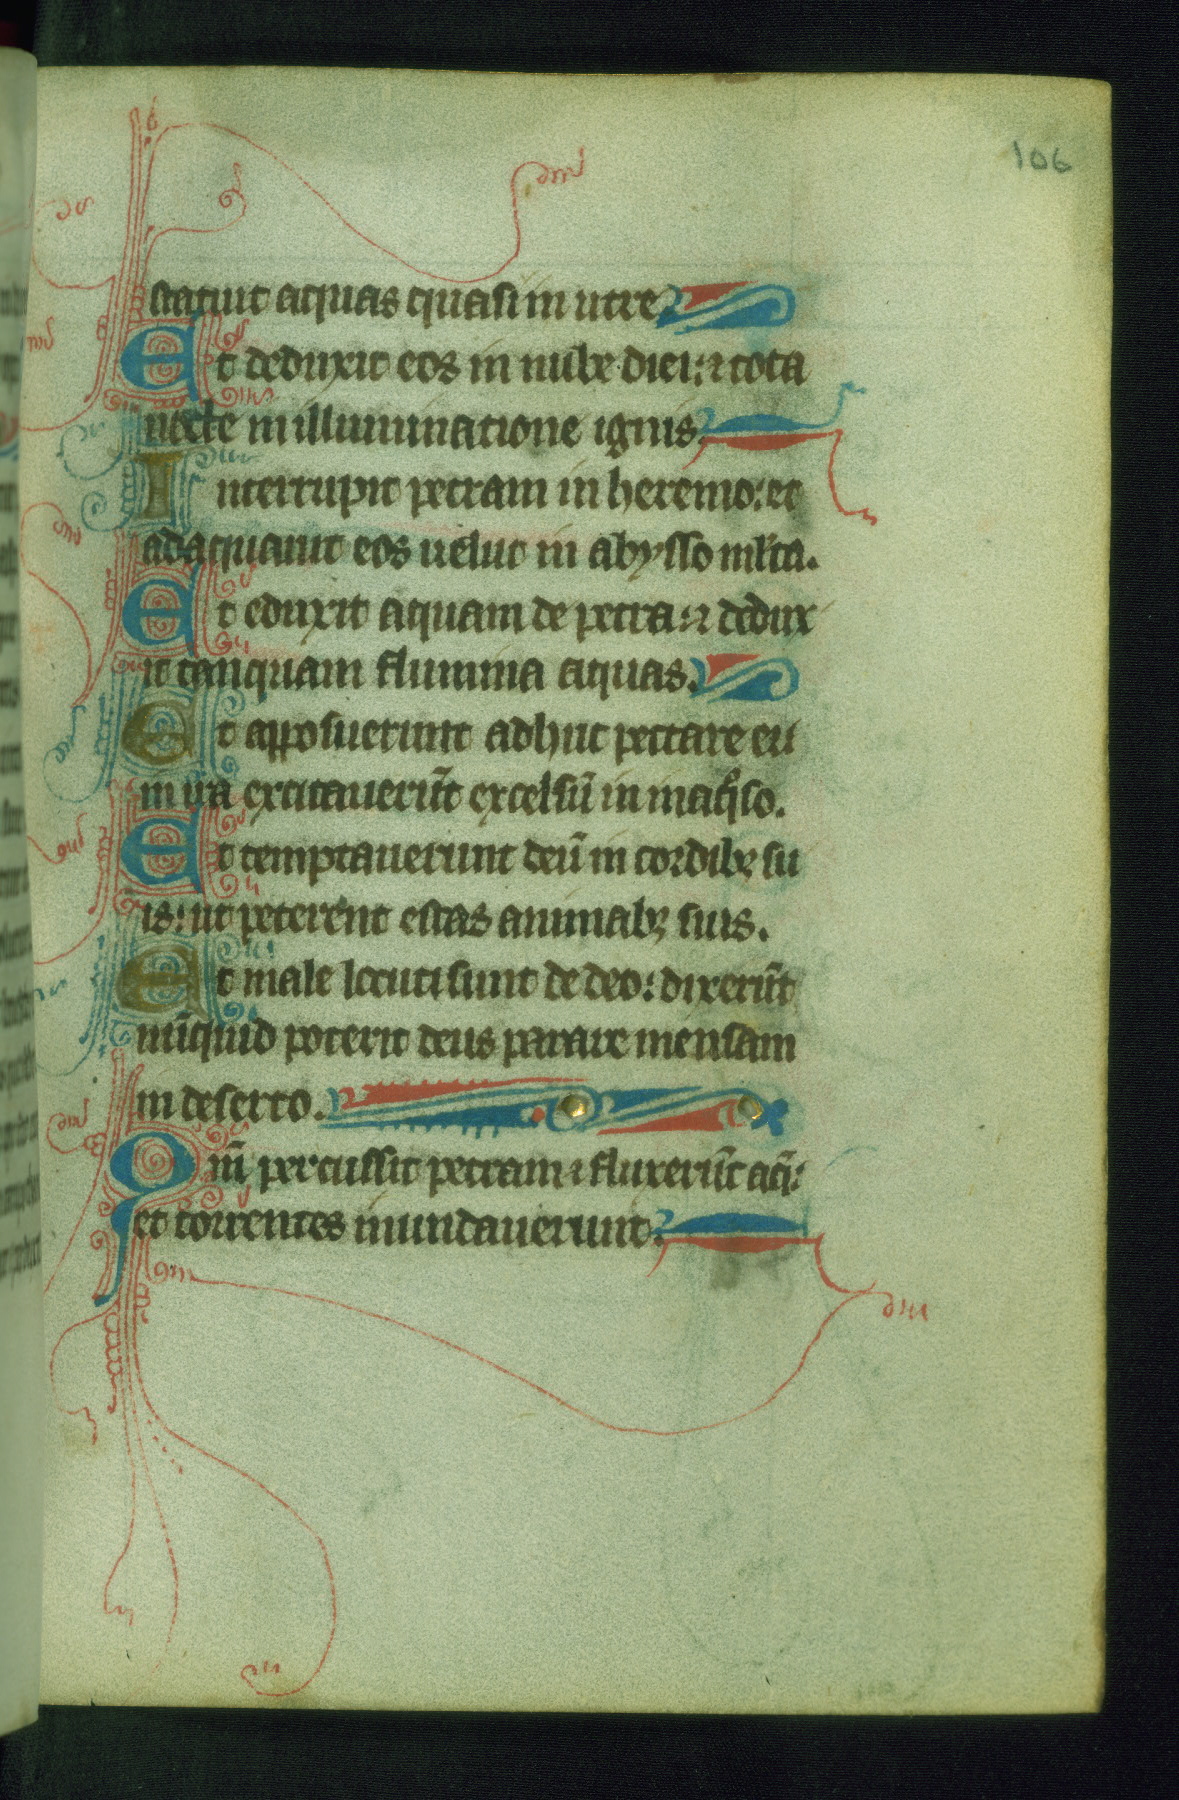 106
statuit aquas quasi in utre.
Et deduxit eos in nube diei: ⁊ tota
nocte in illuminatione ignis.
Interrupit petram in heremo: et
adaquauit eos uelut in abysso ml̄ta.
Et eduxit aquam de petra: ⁊ dedux
it tanquam flumina aquas.
Et apposuerunt adhuc peccare eu
in ira excitauerūt excelsū in inaq̄so.
Et temptauerunt deū in cordibꝫ su
is: ut peterent escas animabꝫ suis.
Et male locuti sunt de deo: dixerūt
nūquid poterit deus parare mensam
in deserto.
Qm̄ percussit petram ⁊ fluxerūt aq̄:
et torrentes inundauerunt.